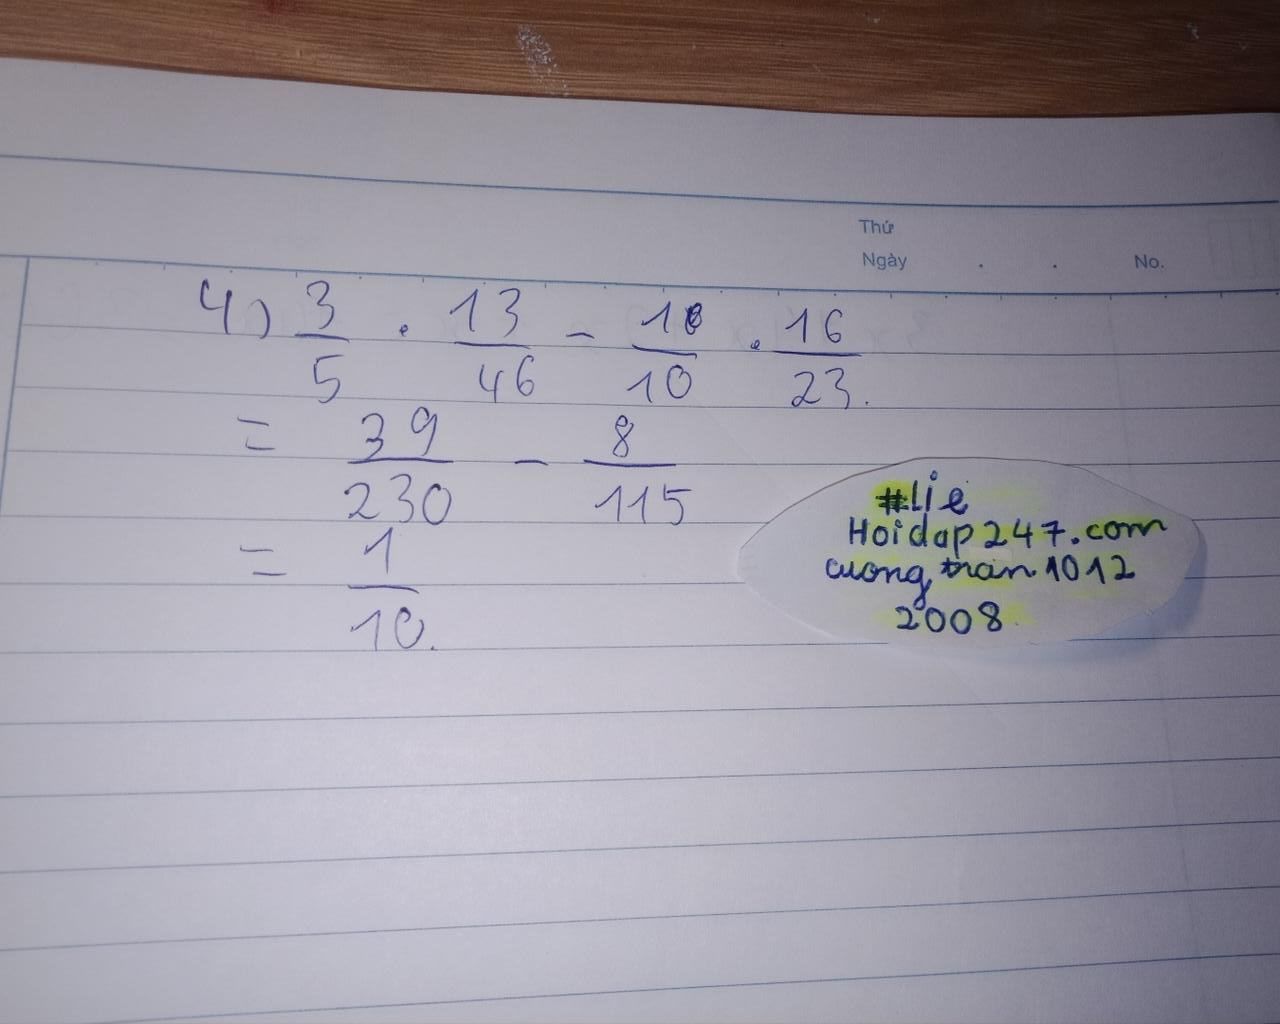 Thứ
Ngày . . No.
4) 3/5 . 13/46 - 1/10 . 16/23.
= 39/230 - 8/115
= 1/10.
#Lie
Hoidap247.com
cuongtran1012
2008